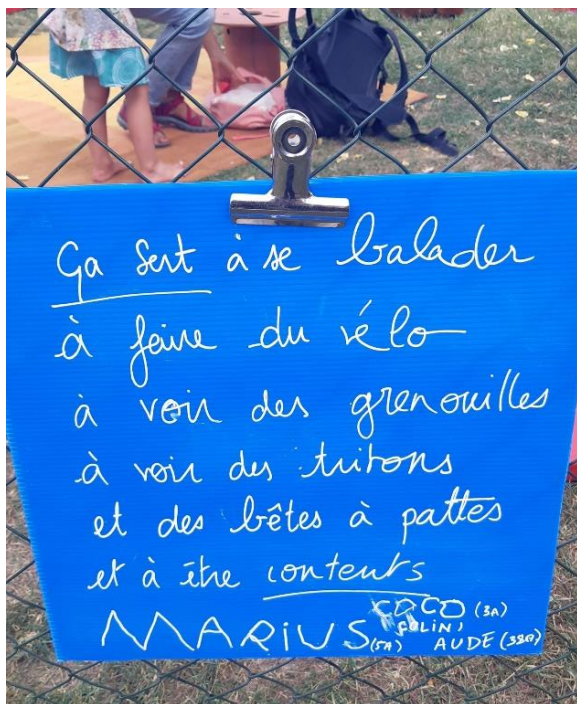 Ça sert à se balader
à faire du vélo
à voir des grenouilles
à voir des tritons
et des bêtes à pattes
et à être contents
COCO (3A)
COLIN,
MARIUS (5A) AUDE (38A)